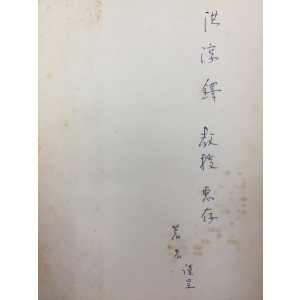 洪淳鐸 教授 惠存
著者 謹呈